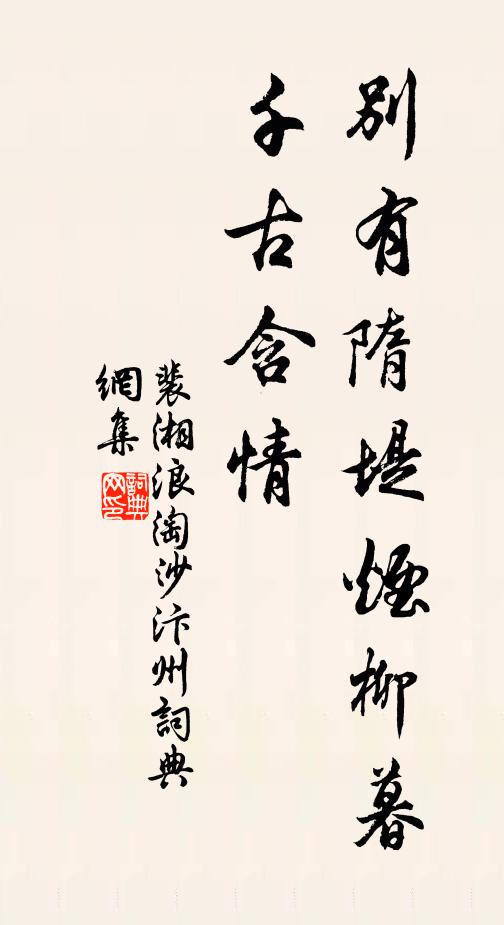 別有隋堤煙柳暮
千古含情
裴湘浪淘沙汴州詞典
網集
詞典
网印